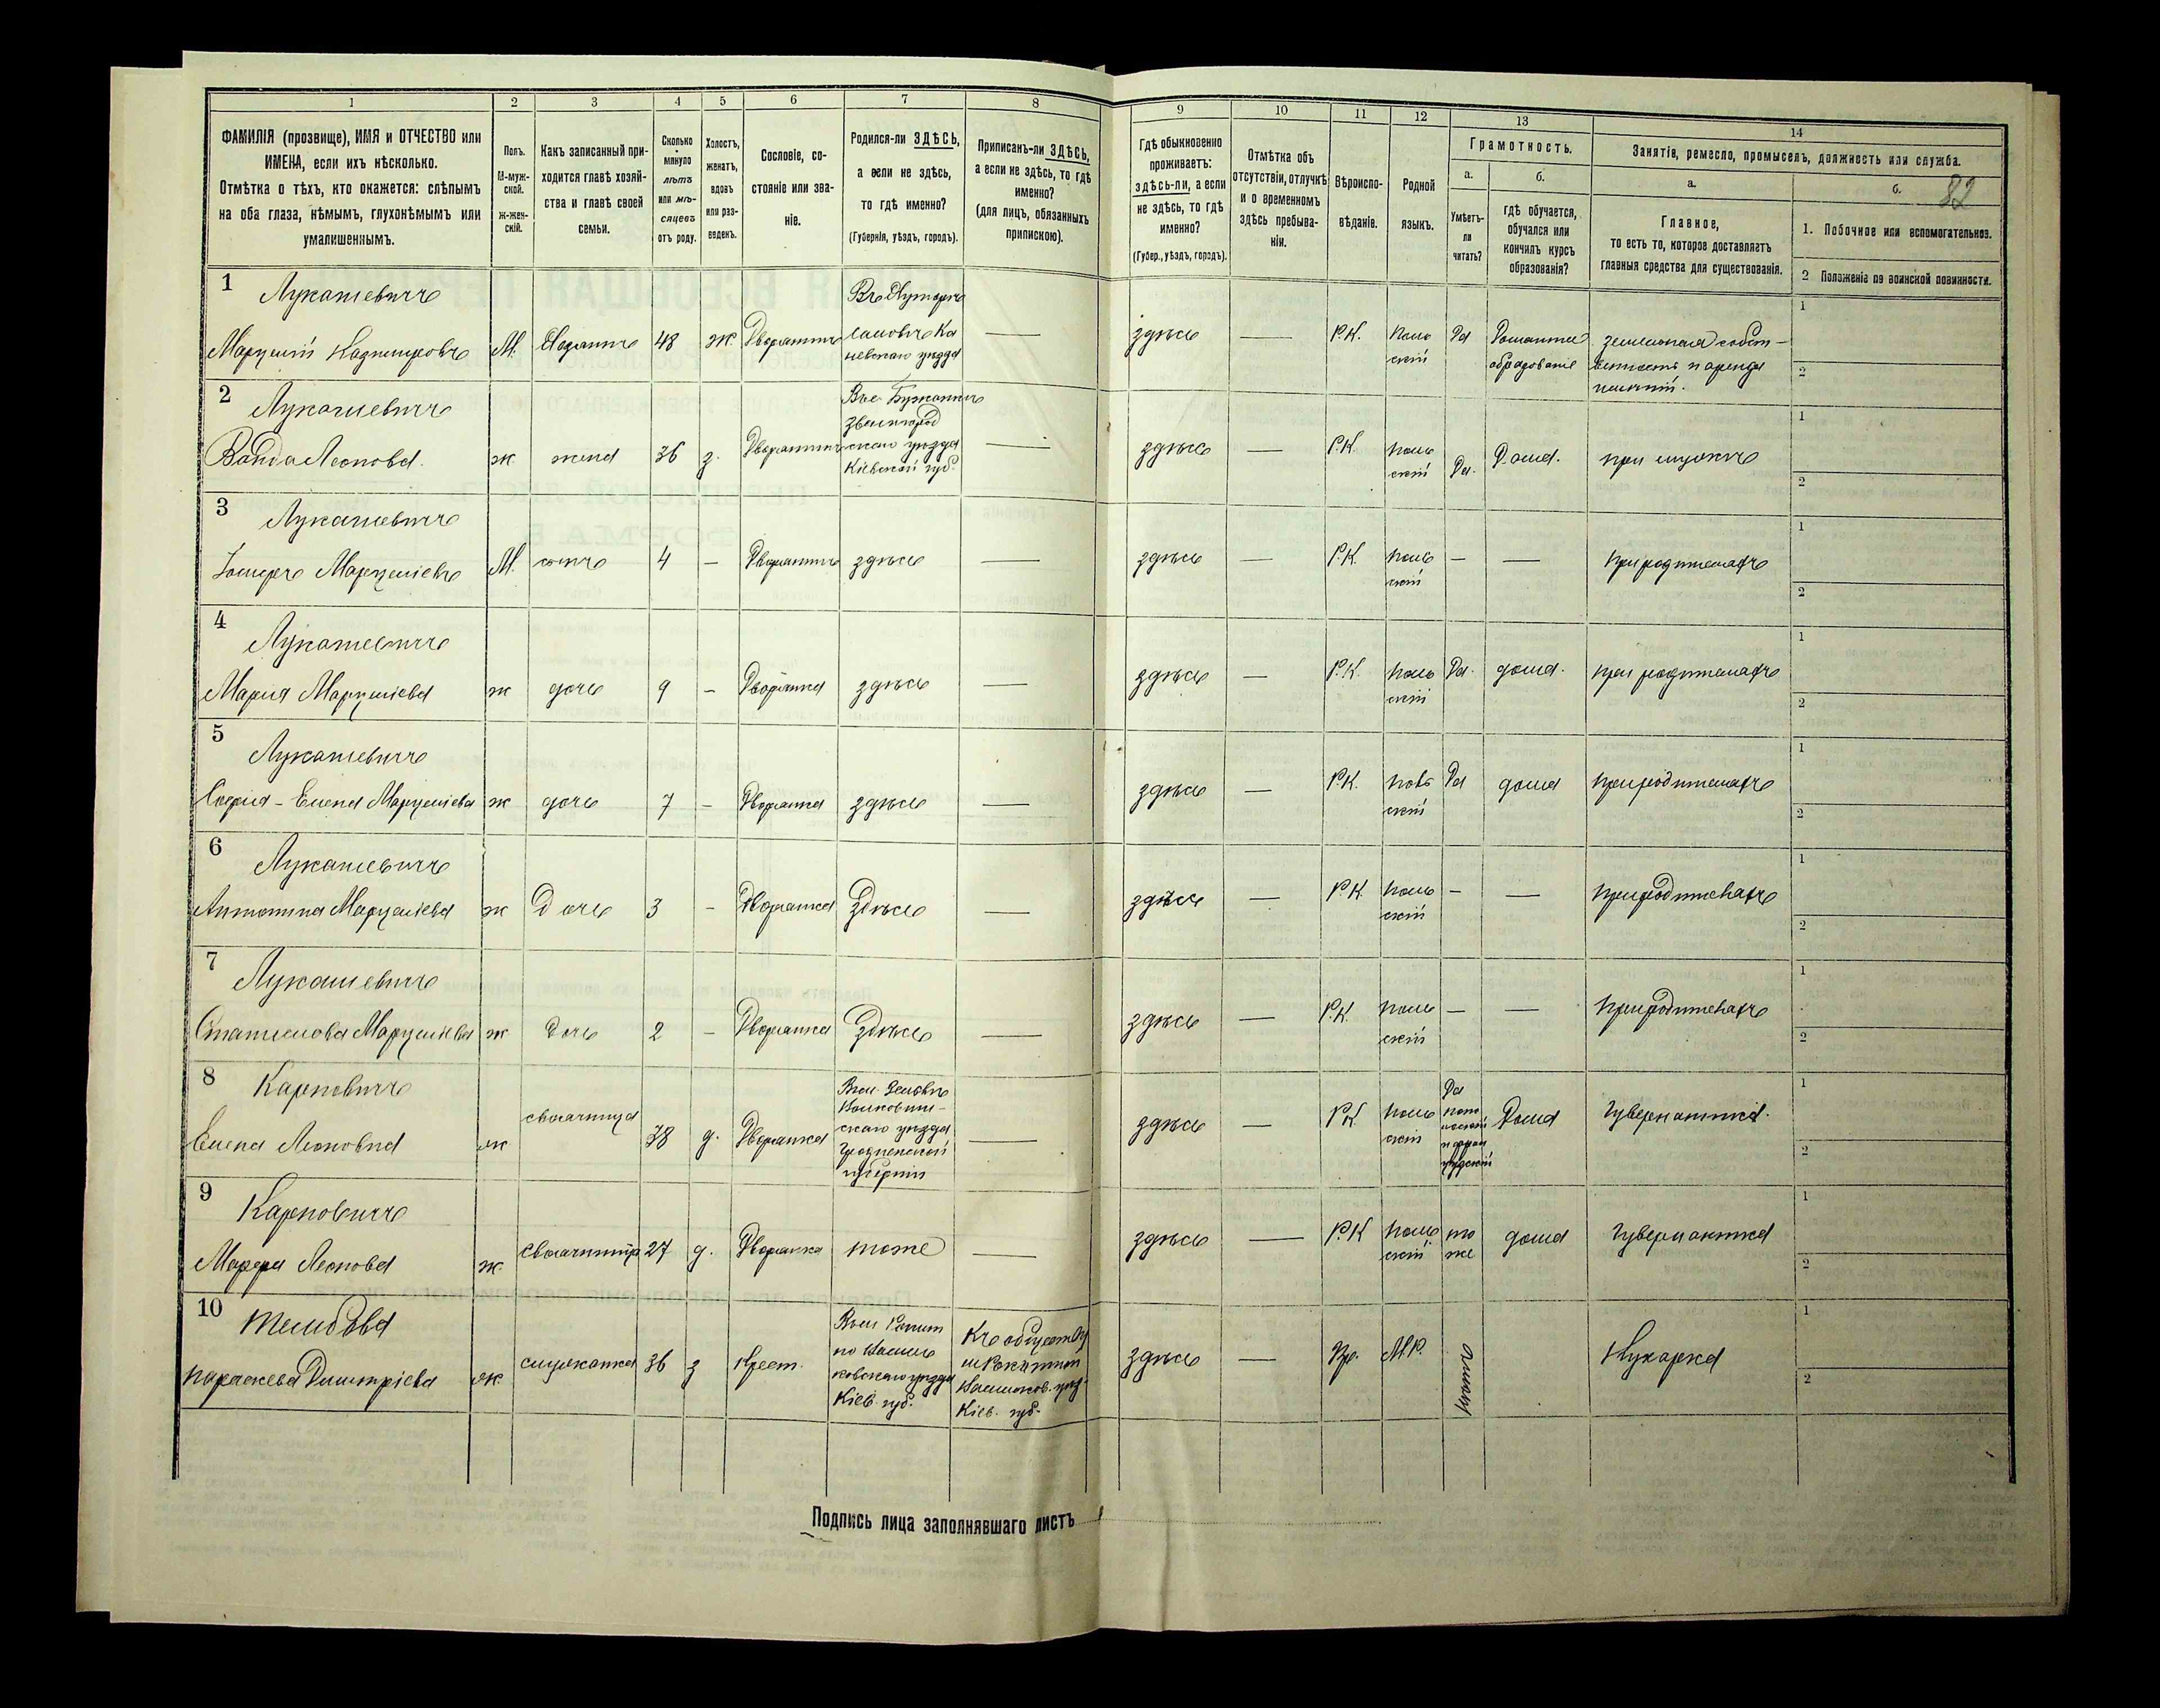 1 2 3 4 5 6 7 8
ФАМИЛІЯ (прозвище), ИМЯ и ОТЧЕСТВО или
ИМЕНА, если ихъ нѣсколько.
Отмѣтка о тѣхъ, кто окажется: слѣпымъ
на оба глаза, нѣмымъ, глухонѣмымъ или
умалишеннымъ.
Полъ.
М-муж-
ской.
ж-жен-
скій.
Какъ записанный при-
ходится главѣ хозяй-
ства и главѣ своей
семьи.
Сколько
минуло
лѣтъ
или мѣ-
сяцевъ
отъ роду.
Холостъ,
женатъ,
вдовъ
или раз-
веденъ.
Сословіе, со-
стояніе или зва-
ніе.
Родился-ли ЗДѢСЬ,
а если не здѣсь,
то гдѣ именно?
(Губернія, уѣздъ, городъ).
Приписанъ-ли ЗДѢСЬ,
а если не здѣсь, то гдѣ
именно?
(для лицъ, обязанныхъ
припискою).
9 10 11 12 13 14
Гдѣ обыкновенно
проживаетъ:
здѣсь-ли, а если
не здѣсь, то гдѣ
именно?
(Губер., уѣздъ, городъ).
Отмѣтка объ
отсутствіи, отлучкѣ
и о временномъ
здѣсь пребыва-
ніи.
Вѣроиспо-
вѣданіе.
Родной
языкъ.
Грамотность.
а.
Умѣетъ-
ли
читать?
б.
гдѣ обучается,
обучался или
кончилъ курсъ
образованія?
Занятіе, ремесло, промыселъ, должность или служба.
а.
Главное,
то есть то, которое доставляетъ
главныя средства для существованія.
б.
82
1. Побочное или вспомогательное.
2 Положеніе по воинской повинности.
1 Лукашевичъ
Марцелій Кадимировъ М. 48 ж. Дворянинъ
невскаго уѣзда
здѣсь — Р.К. Поль
скій Да Домашнее
образованіе
земельная собст-
венность и аренда
1
2
2 Лукашевичъ
Ванда Леонова. ж жена 36 з.
Звенигород
скаго уѣзда
Кіевской губ.
— здѣсь — Р.К. поль
скій Да. Дома. при мужѣ
1
2
3 Лукашевичъ
Іосифъ Марцеліевъ М. сынъ 4 – Дворянинъ здѣсь — здѣсь — Р.К. поль
скій — — при родителяхъ
1
2
4 Лукашевичъ
Марія Марцеліева ж дочь 9 – Дворянка здѣсь — здѣсь — Р.К. поль
скій Да. дома. при родителяхъ
1
2
5 Лукашевичъ
Софія-Елена Марцеліева ж дочь 7 – Дворянка здѣсь — здѣсь — Р.К. поль
скій Да дома при родителяхъ
1
2
6 Лукашевичъ
Антонина Марцеліева ж Дочь 3 – Дворянка Здѣсь — здѣсь — Р.К. поль
скій — — при родителяхъ
1
2
7 Лукашевичъ
Станислава Марцеліева ж Дочь 2 – Дворянка Здѣсь — здѣсь — Р.К. поль
скій — — при родителяхъ
1
2
8 Карповичъ
Елена Леоновна ж свояченица 38 д. Дворянка
Волковыс-
скаго уѣзда
Гродненской
губерніи
— здѣсь — Р.К. поль
скій
Да
Дома Гувернантка.
1
2
9 Карповичъ
Марфа Леонова ж. свояченица 27 д. Дворянка тоже — здѣсь — Р.К поль
скій то
же дома Гувернантка
1
2
10
Параскева Димитріева ж служанка 36 з Крест.
Василь
ковскаго уѣзда
Кіев. губ.
Къ обществу
Кіев. губ.
здѣсь — Пр. М.Р. Кухарка
1
2
Подпись лица заполнявшаго листъ